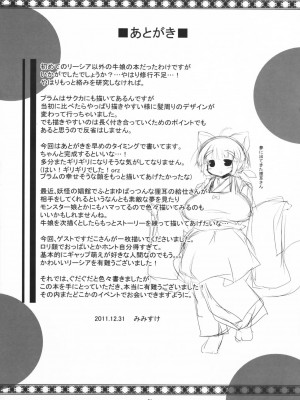 ■あとがき■
初めてのリーシア以外の牛娘の本だったわけですが
いかがでしたでしょうか？…やはり修行不足…！
やはりもっと絡みを研究しなければ。
プラムはサクカにも描いてあるんですが
当初に比べたらやっぱり描きやすいように髪周りのデザインが
変わって行っちゃいました。
でも描きやすいのは長く付き合っていくためのポイントでも
あると思うので反省はしません。
今回はあとがきを早めのタイミングで書いてます。
ちゃんと完成するといい…！
多分またギリギリになりそうな気がしてなりません。
(はい！ギリギリでした！orz
プラムの幸せそうな顔をもっと描いてあげたいなぁ…)
最近、妖怪の娼館でふたまゆぱっつんな狸耳の給仕さんが
相手をしてくれるというなんとも素敵な夢を見たり
モンスター娘とかにもハマってるので色々描いてみるのも
いいかもしれませんね。
牛娘を次描くとしたらもっとストーリーを練って描いてあげたいな！
今回、ゲストですだこさんが一枚描いてくださいました。
ロリ顔でおっぱいとかホント自分得すぎて。
基本的にギャップ萌えが好きな人間なのでもう…、
かわいいリーシアを有難うございました！
それでは、ぐだぐだと色々書きましたが
この本を手にとっていただき、本当に有難うございます！
その内またどこかのイベントでお会いできますように。
2011.12.31　みみすけ